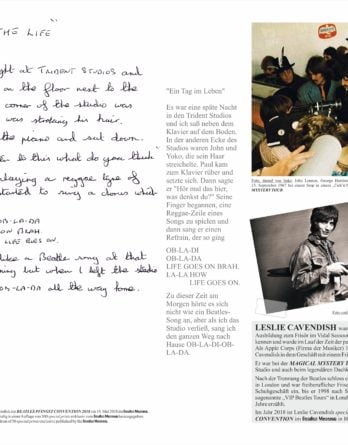 THE LIFE
ght at TRIDENT STUDIOS and
on the floor next to the
corner of the studio
was stroking his hair.
the piano and sat down.
to this what do you think
playing a reggae type of
started to sing a chorus which
OB-LA-DA
ON BRAH.
LIFE GOES ON.
like a Beatle song at that
but when I left the studio
OB-LA-DA all the way home.
"Ein Tag im Leben"
Es war eine späte Nacht
in den Trident Studios
und ich saß neben dem
Klavier auf dem Boden.
In der anderen Ecke des
Studios waren John und
Yoko, die sein Haar
streichelte. Paul kam
zum Klavier rüber und
setzte sich. Dann sagte
er "Hör mal das hier,
was denkst du?" Seine
Finger begannen, eine
Reggae-Zeile eines
Songs zu spielen und
dann sang er einen
Refrain, der so ging
OB-LA-DI
OB-LA-DA
LIFE GOES ON BRAH.
LA-LA HOW
LIFE GOES ON.
Zu dieser Zeit am
Morgen hörte es sich
nicht wie ein Beatles-
Song an, aber als ich das
Studio verließ, sang ich
den ganzen Weg nach
Hause OB-LA-DI-OB-
LA-DA.
MYSTERY TOUR
LESLIE CAVENDISH
Ausbildung zum Friseur im Vidal Sassoon
und wurde im Lauf der Zeit der
Als Apple Corps (Firma der Musiker)
Cavendish in dem Geschäft mit einem
Er war bei der MAGICAL MYSTERY
Studio und auch beim legendären
Nach der Trennung der Beatles schloss
in London und war freiberuflicher
Schulgeschäfte, bis er 1998 nach
sogenannte „VIP Beatles Tours" in London
Jahre erzählt.
Im Jahr 2018 ist Leslie Cavendish
CONVENTION im Beatles Museum.